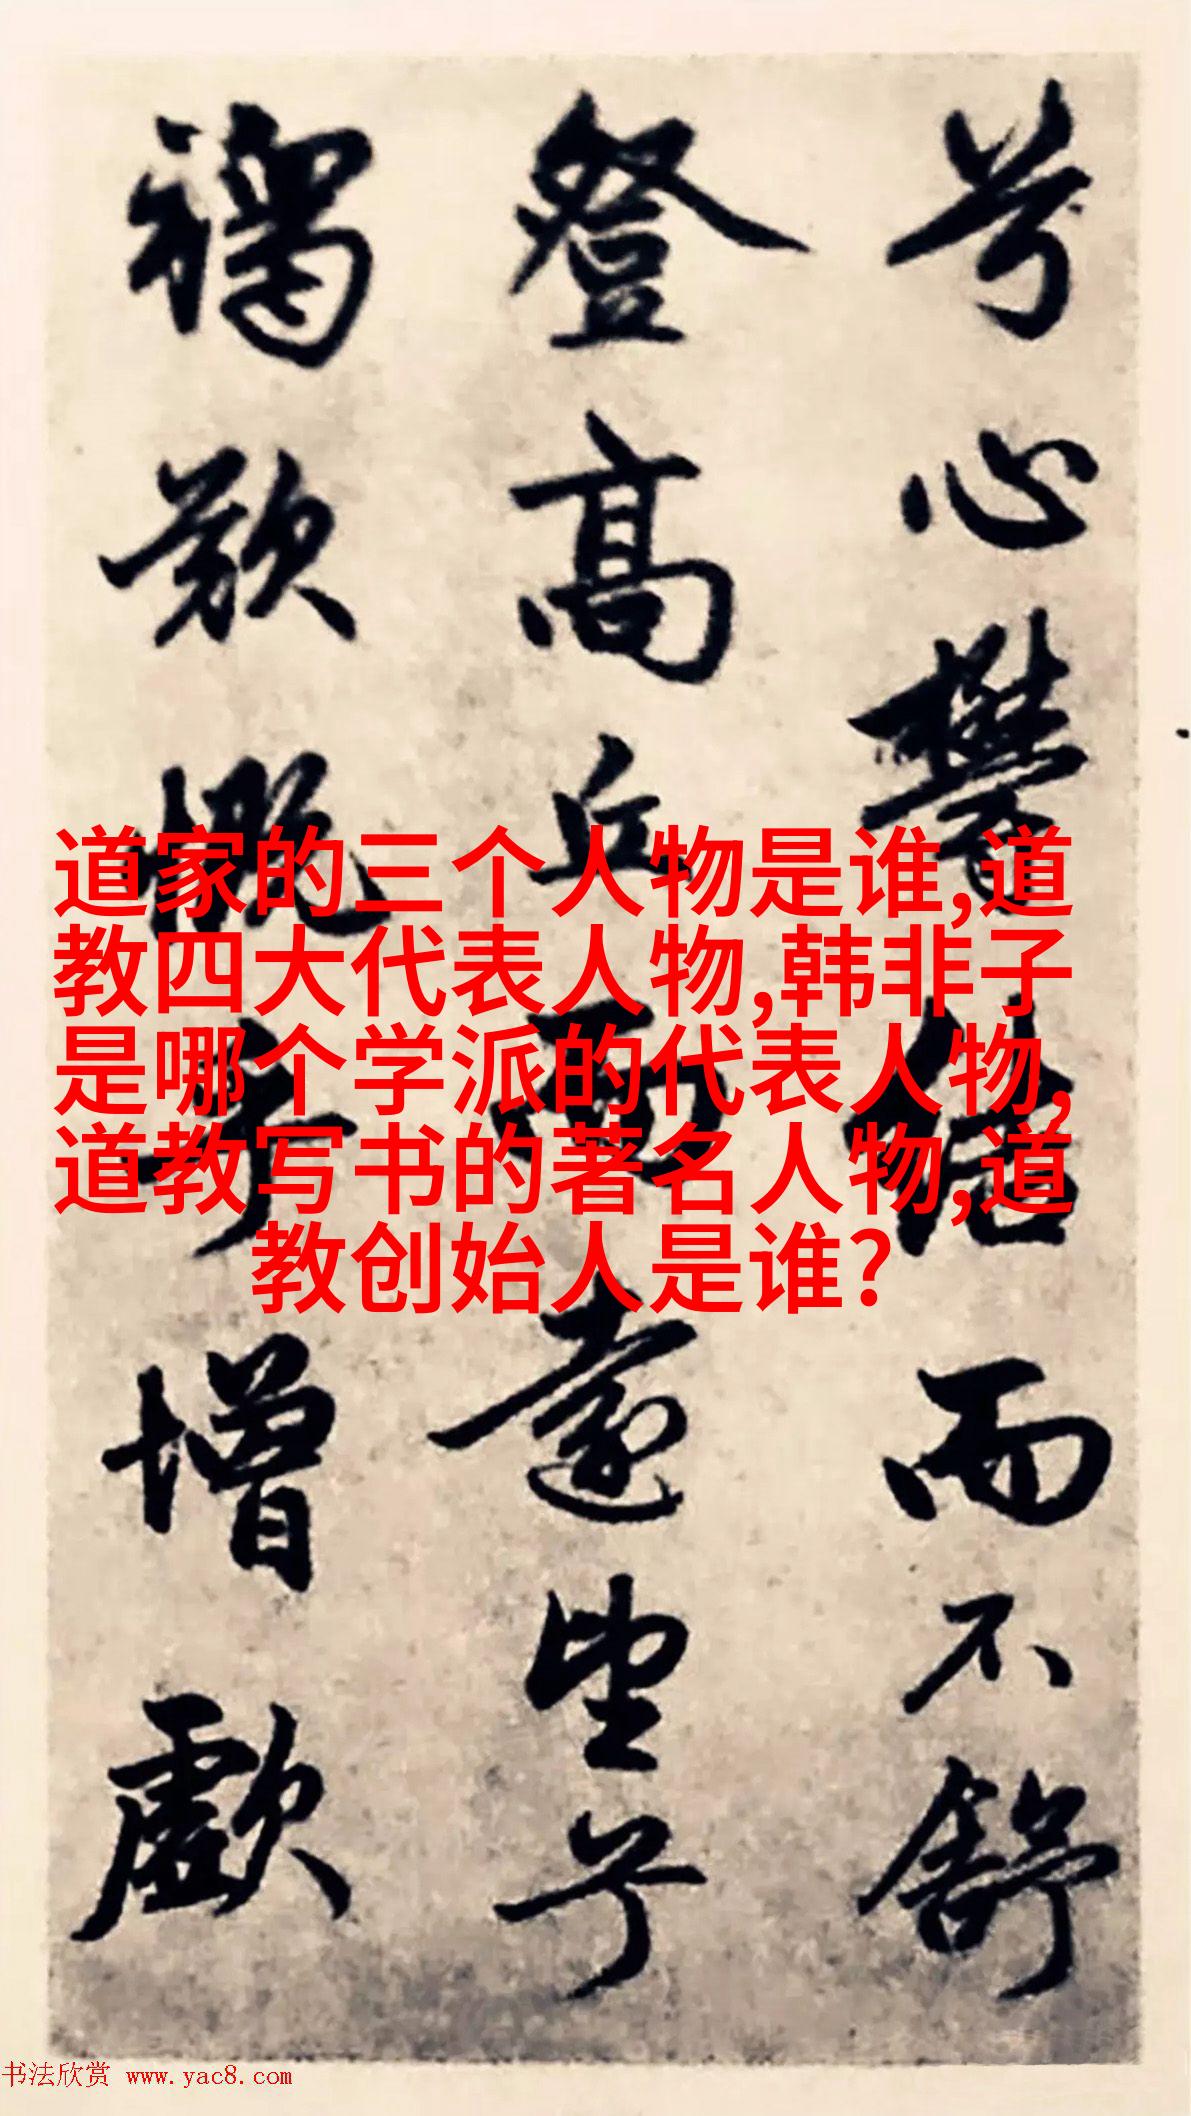 兮心鬱結而不舒
登高丘而遠望兮
歎慨乎增歔
道家的三个人物是谁,道
教四大代表人物,韩非子
是哪个学派的代表人物,
道教写书的著名人物,道
教创始人是谁?
书法欣赏 www.yac8.com